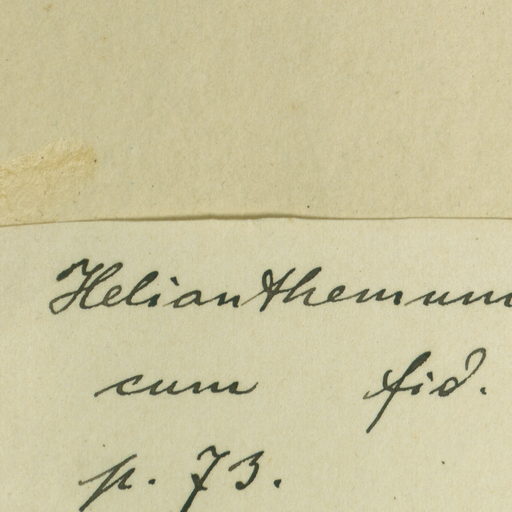 Helianthemum
cum fid.
p. 73.